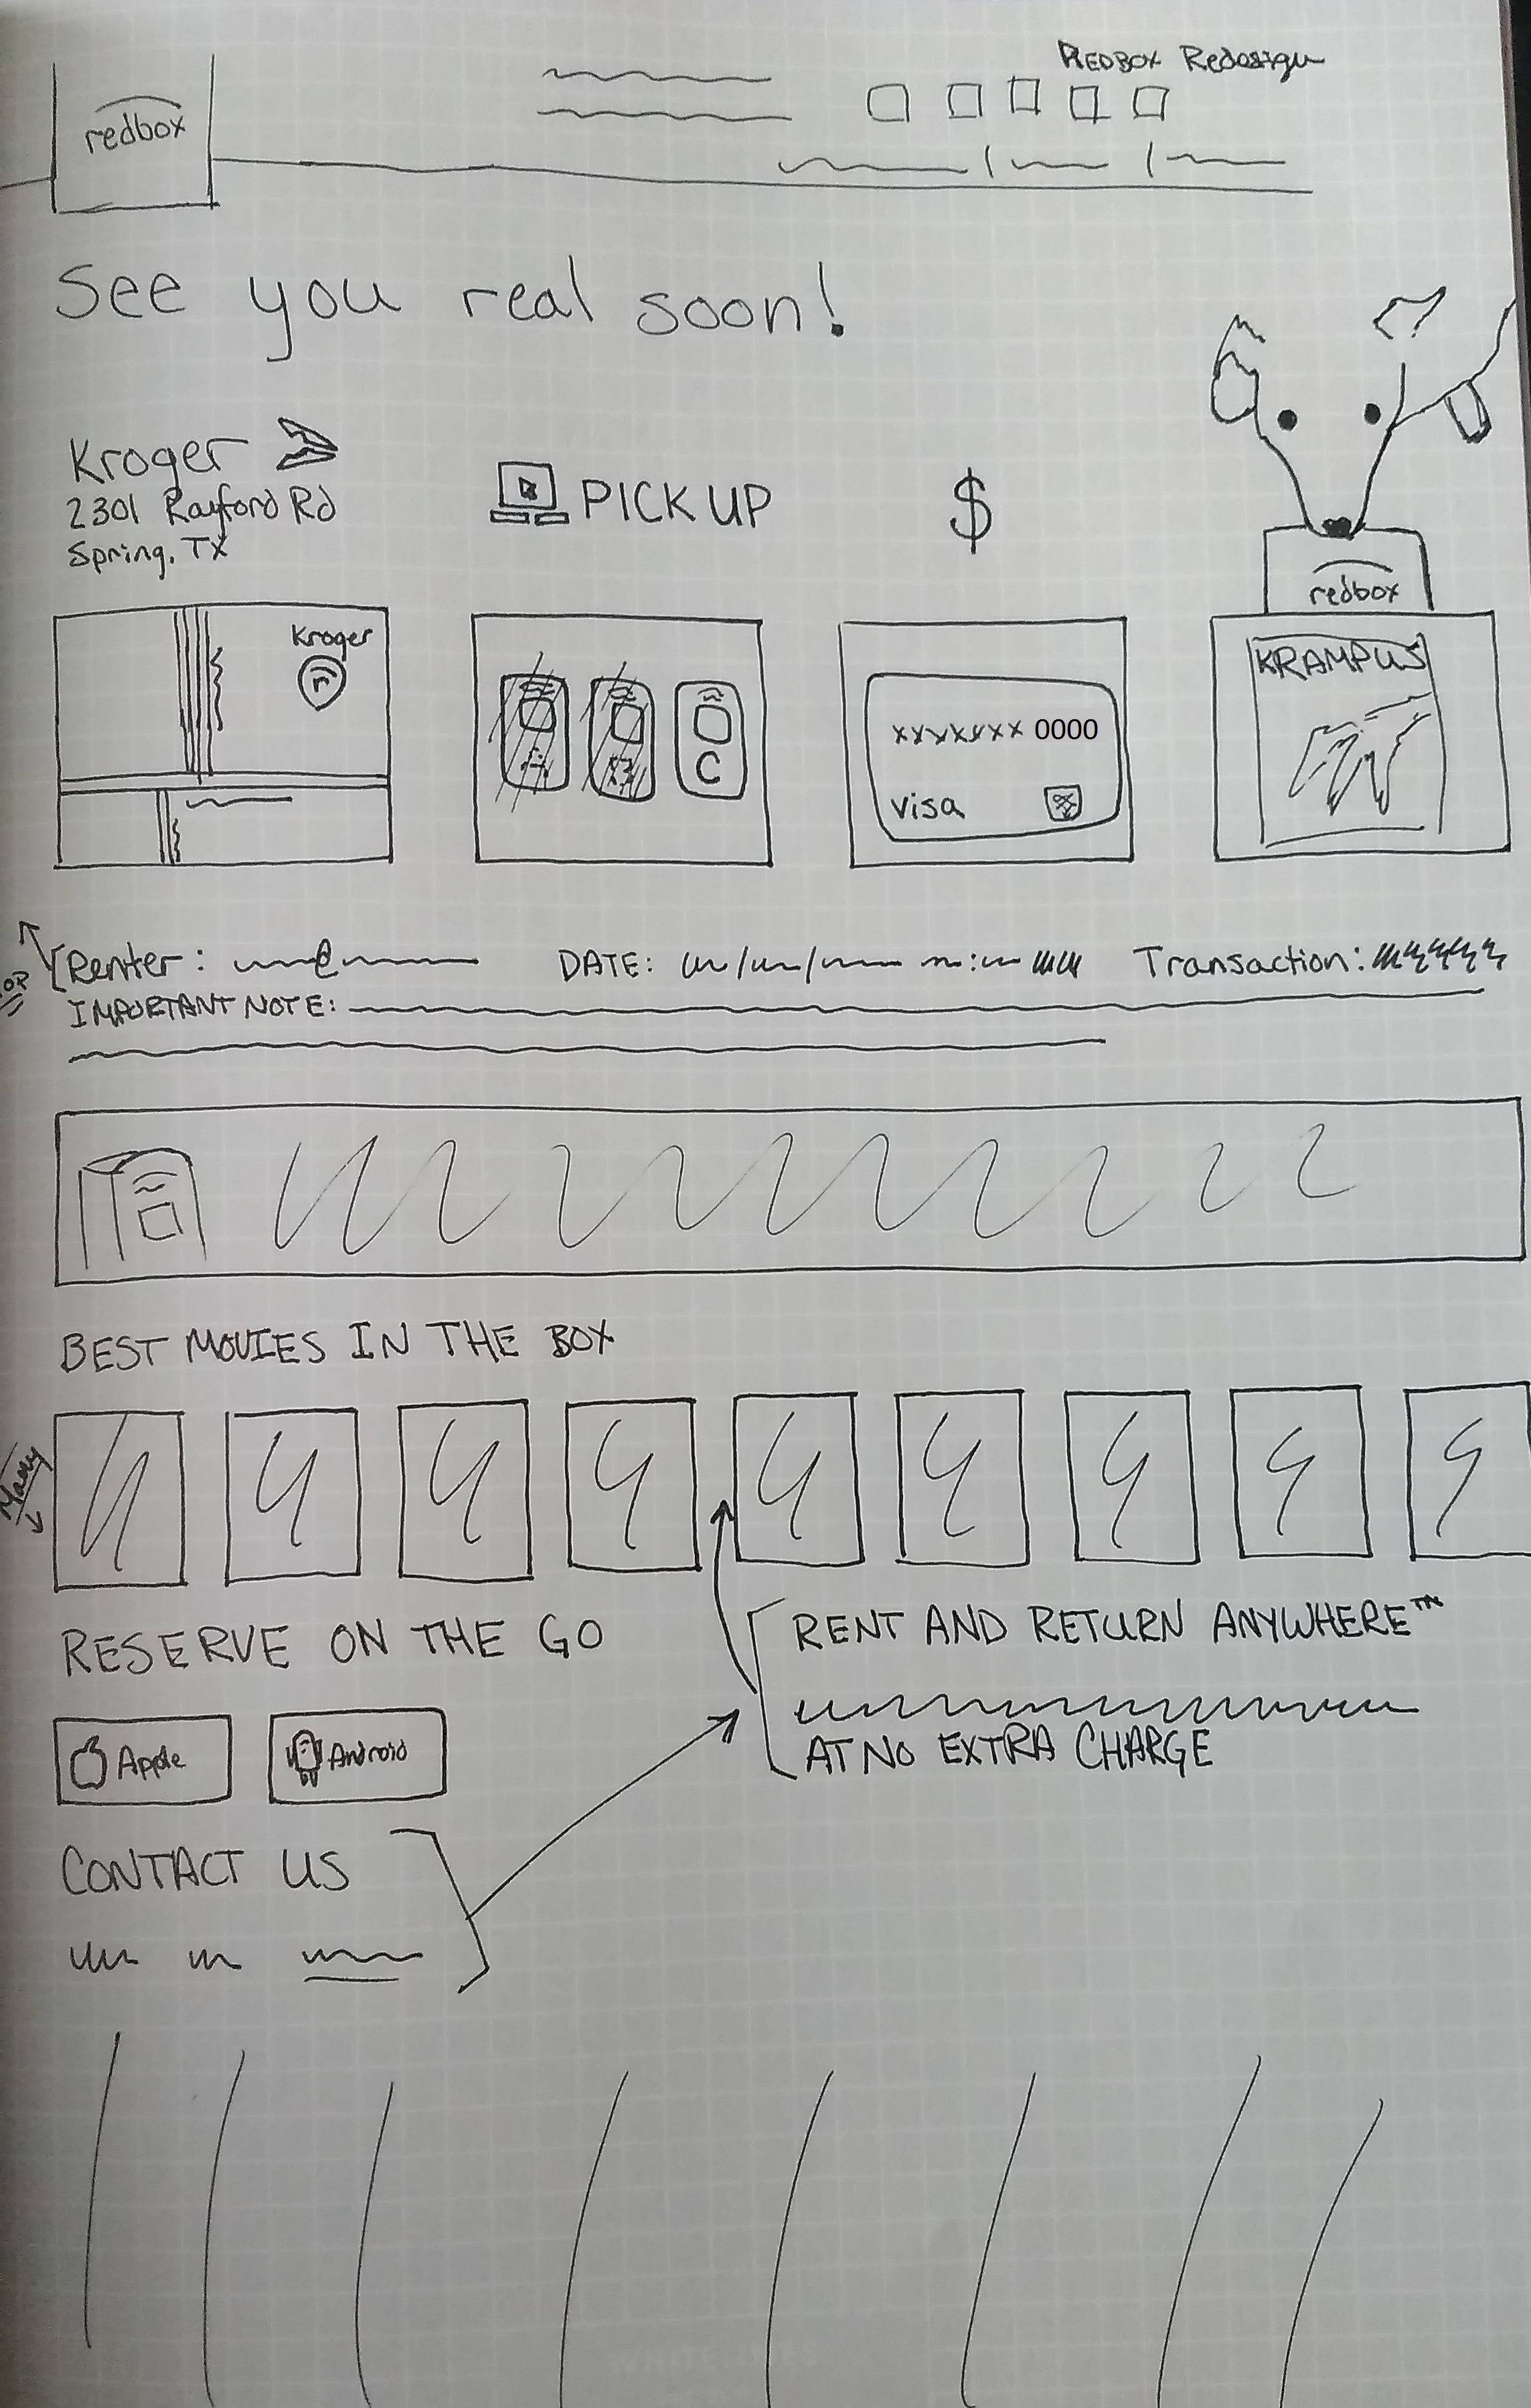 REDBOX Redesign
redbox
See you real soon!
Kroger
2301 Rayford Rd
Spring, TX
PICK UP
$
redbox
Kroger
r
A
B
C
xxxxxxx 0000
visa
KRAMPUS
Renter: @
DATE: / / :
Transaction:
IMPORTANT NOTE:
BEST MOVIES IN THE BOX
RESERVE ON THE GO
Apple
Android
RENT AND RETURN ANYWHERE™
AT NO EXTRA CHARGE
CONTACT US